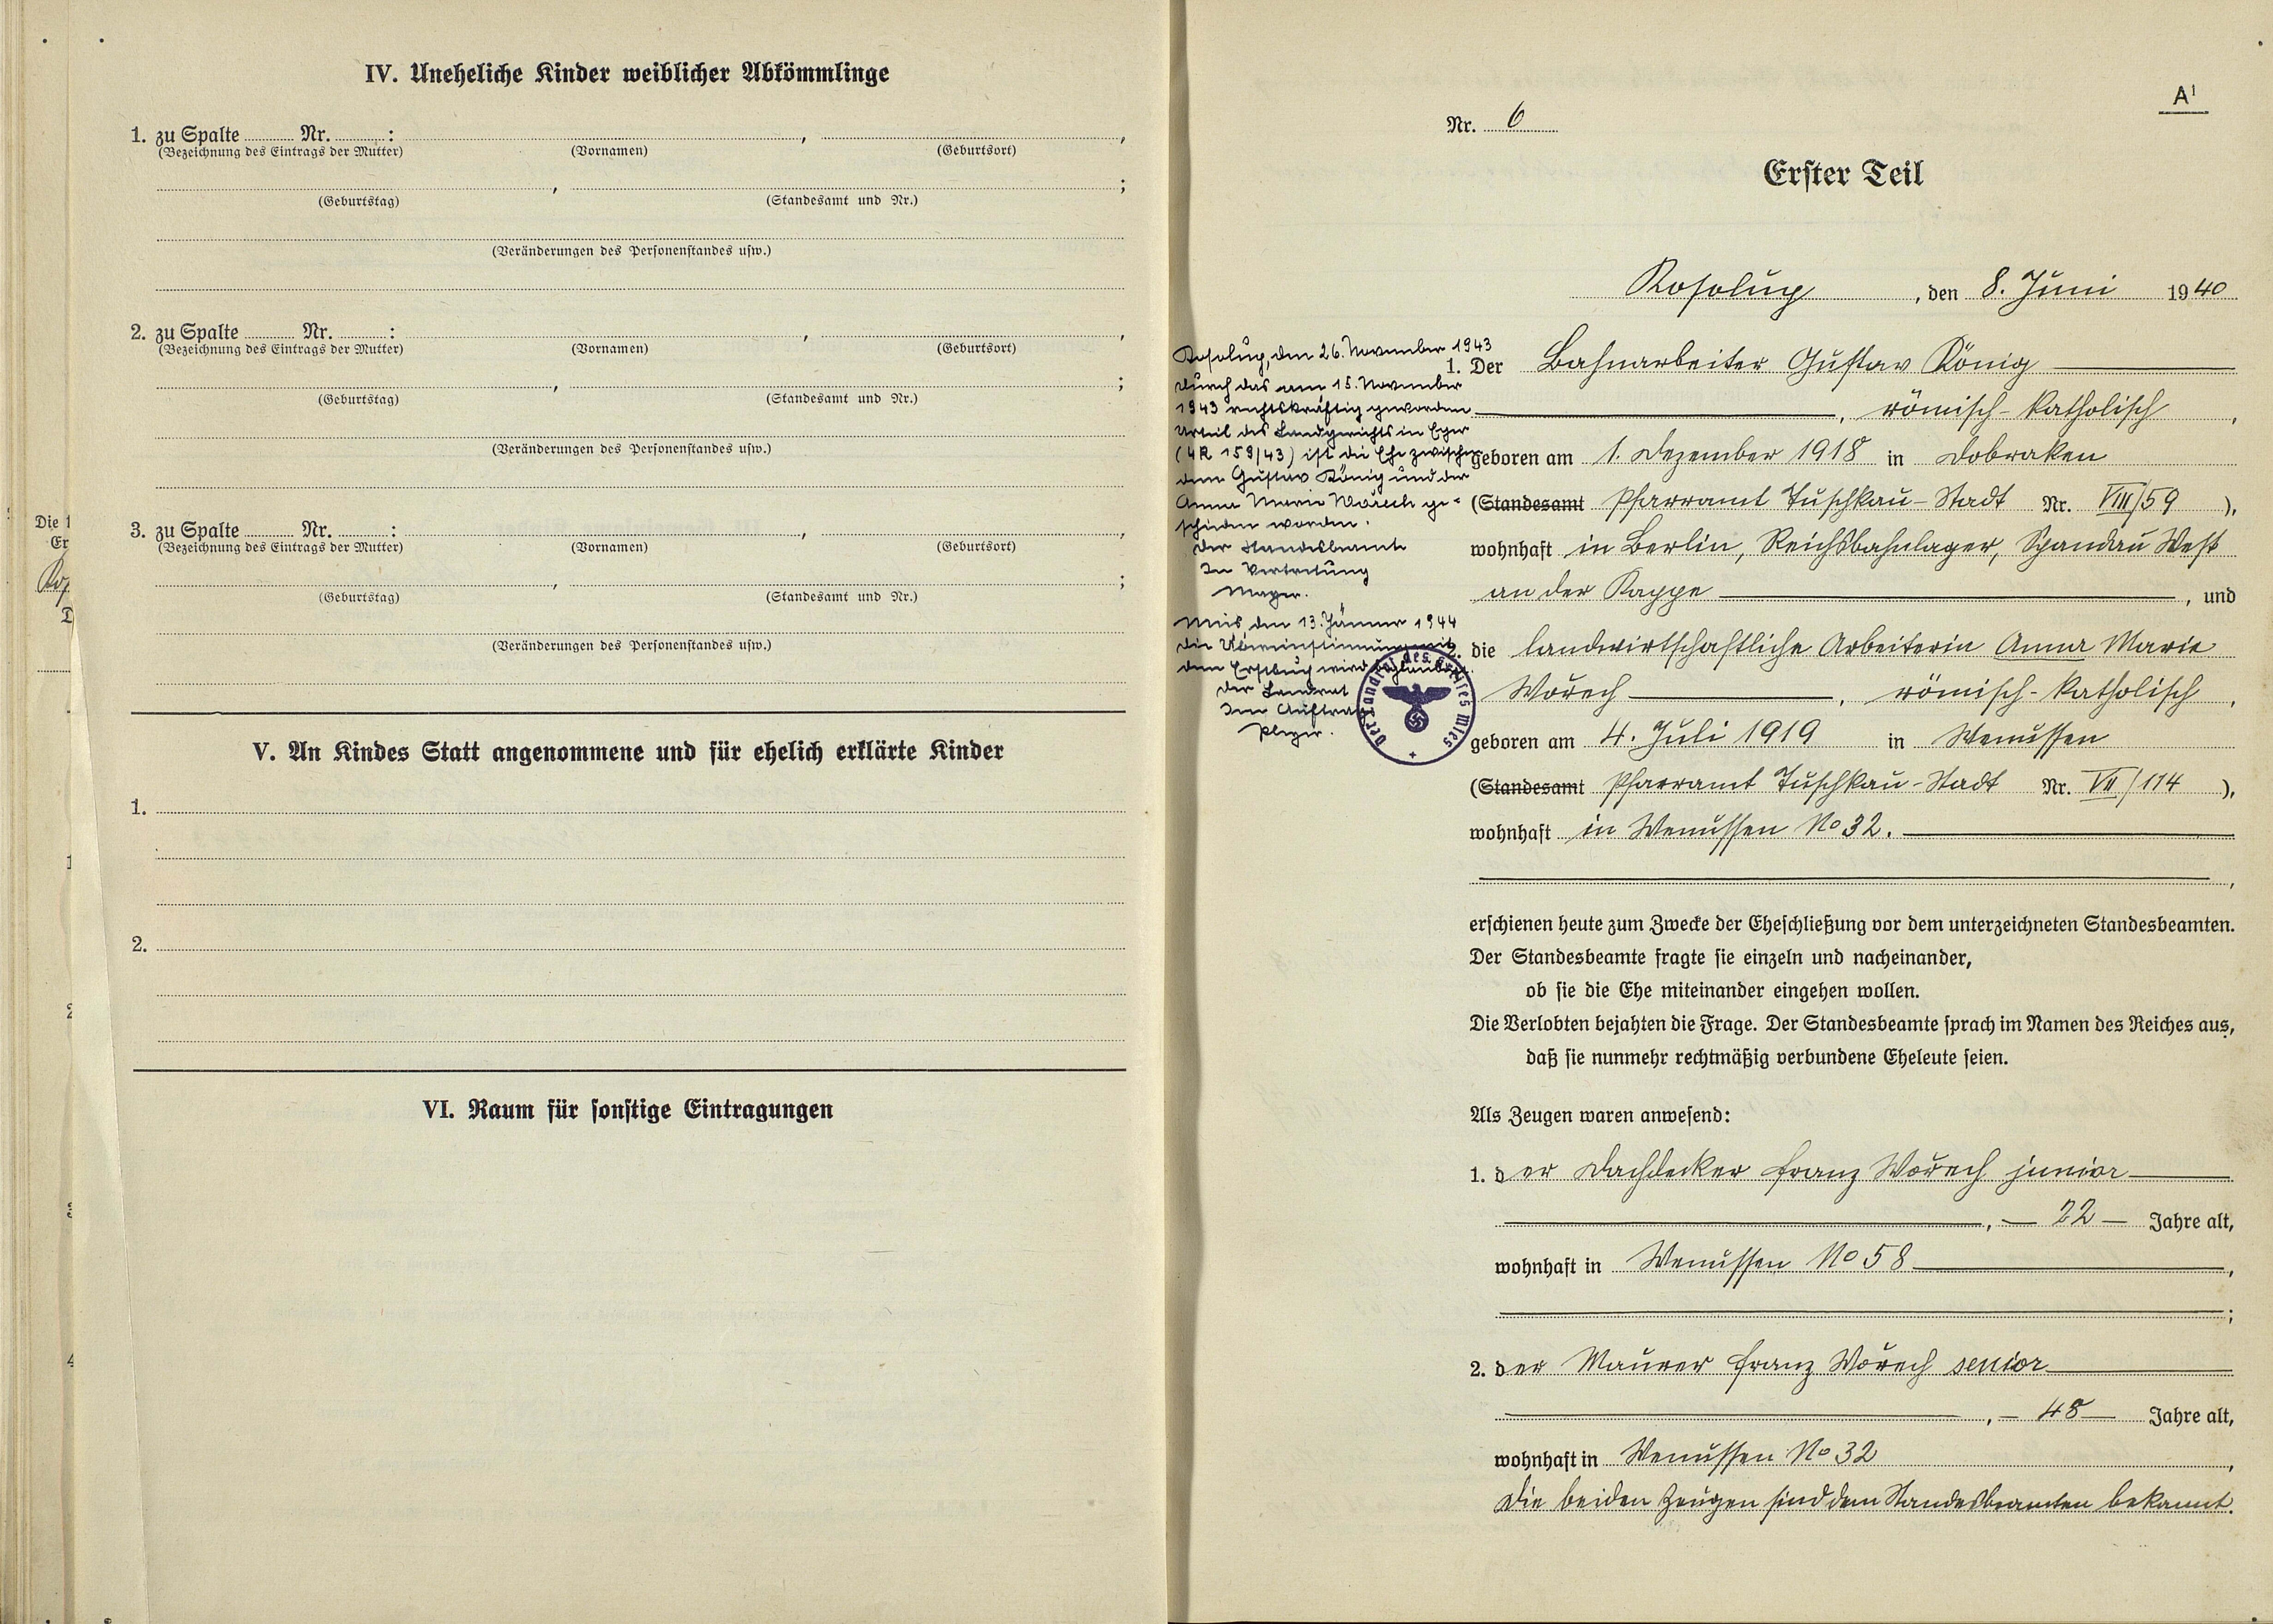 IV. Uneheliche Kinder weiblicher Abkömmlinge
1. zu Spalte ........ Nr. ........ : , ,
(Bezeichnung des Eintrags der Mutter) (Vornamen) (Geburtsort)
, ;
(Geburtstag) (Standesamt und Nr.)
(Veränderungen des Personenstandes usw.)
2. zu Spalte ........ Nr. ........ : , ,
(Bezeichnung des Eintrags der Mutter) (Vornamen) (Geburtsort)
, ;
(Geburtstag) (Standesamt und Nr.)
(Veränderungen des Personenstandes usw.)
3. zu Spalte ........ Nr. ........ : , ,
(Bezeichnung des Eintrags der Mutter) (Vornamen) (Geburtsort)
, ;
(Geburtstag) (Standesamt und Nr.)
(Veränderungen des Personenstandes usw.)
V. An Kindes Statt angenommene und für ehelich erklärte Kinder
1.
2.
VI. Raum für sonstige Eintragungen
A¹
Nr. 6
Erster Teil
Kosolup, den 8. Juni 1940
Kosolup, den 26. November 1943
Durch das am 15. November
1943 rechtskräftig geworden
Urteil des Landgerichts in Eger
(4R 159/43) ist die Ehe zwischen
dem Gustav König und der
Anna Marie Worech ge-
schieden worden.
Der Standesbeamte
In Vertretung
Mayer.
Mies, den 13. Jänner 1944
Die Übereinstimmung mit
dem Erstbuch wird beglaubigt.
Der Landrat
Im Auftrag
Der Landrat des Kreises Mies
1. Der Bahnarbeiter Gustav König
, römisch-katholisch,
geboren am 1. Dezember 1918 in Dobraken
(Standesamt Pfarramt Tuschkau-Stadt Nr. VIII/59 ),
wohnhaft in Berlin, Reichsbahnlager, Spandau West
an der Kappe, und
die landwirtschaftliche Arbeiterin Anna Marie
Worech, römisch-katholisch,
geboren am 4. Juli 1919 in Wenussen
(Standesamt Pfarramt Tuschkau-Stadt Nr. VII/114 ),
wohnhaft in Wenussen No 32.
,
erschienen heute zum Zwecke der Eheschließung vor dem unterzeichneten Standesbeamten.
Der Standesbeamte fragte sie einzeln und nacheinander,
ob sie die Ehe miteinander eingehen wollen.
Die Verlobten bejahten die Frage. Der Standesbeamte sprach im Namen des Reiches aus,
daß sie nunmehr rechtmäßig verbundene Eheleute seien.
Als Zeugen waren anwesend:
1. der Dachdecker Franz Worech junior
, — 22 — Jahre alt,
wohnhaft in Wenussen No 58,
;
2. der Maurer Franz Worech senior
, — 48 — Jahre alt,
wohnhaft in Wenussen No 32,
Die beiden Zeugen sind dem Standesbeamten bekannt.